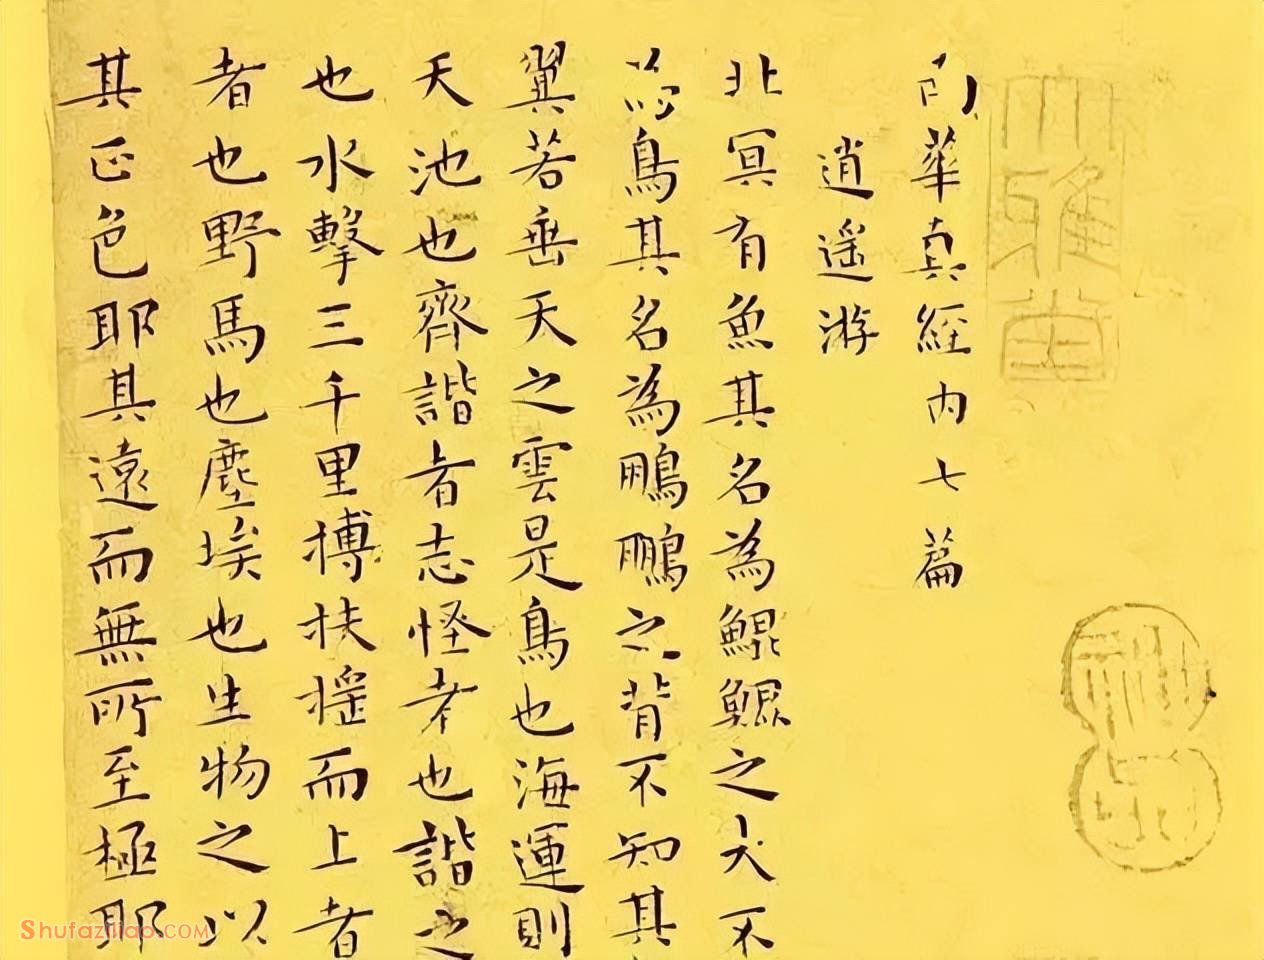 南華真經内七篇
逍遥游
北冥有魚其名為鯤鯤之大不
而鳥其名為鵬鵬之背不知其
翼若垂天之雲是鳥也海運則
天池也齊諧者志怪者也諧之
也水擊三千里搏扶揺而上者
者也野馬也塵埃也生物之以
其正色耶其遠而無所至極耶
Shufaziliao.COM